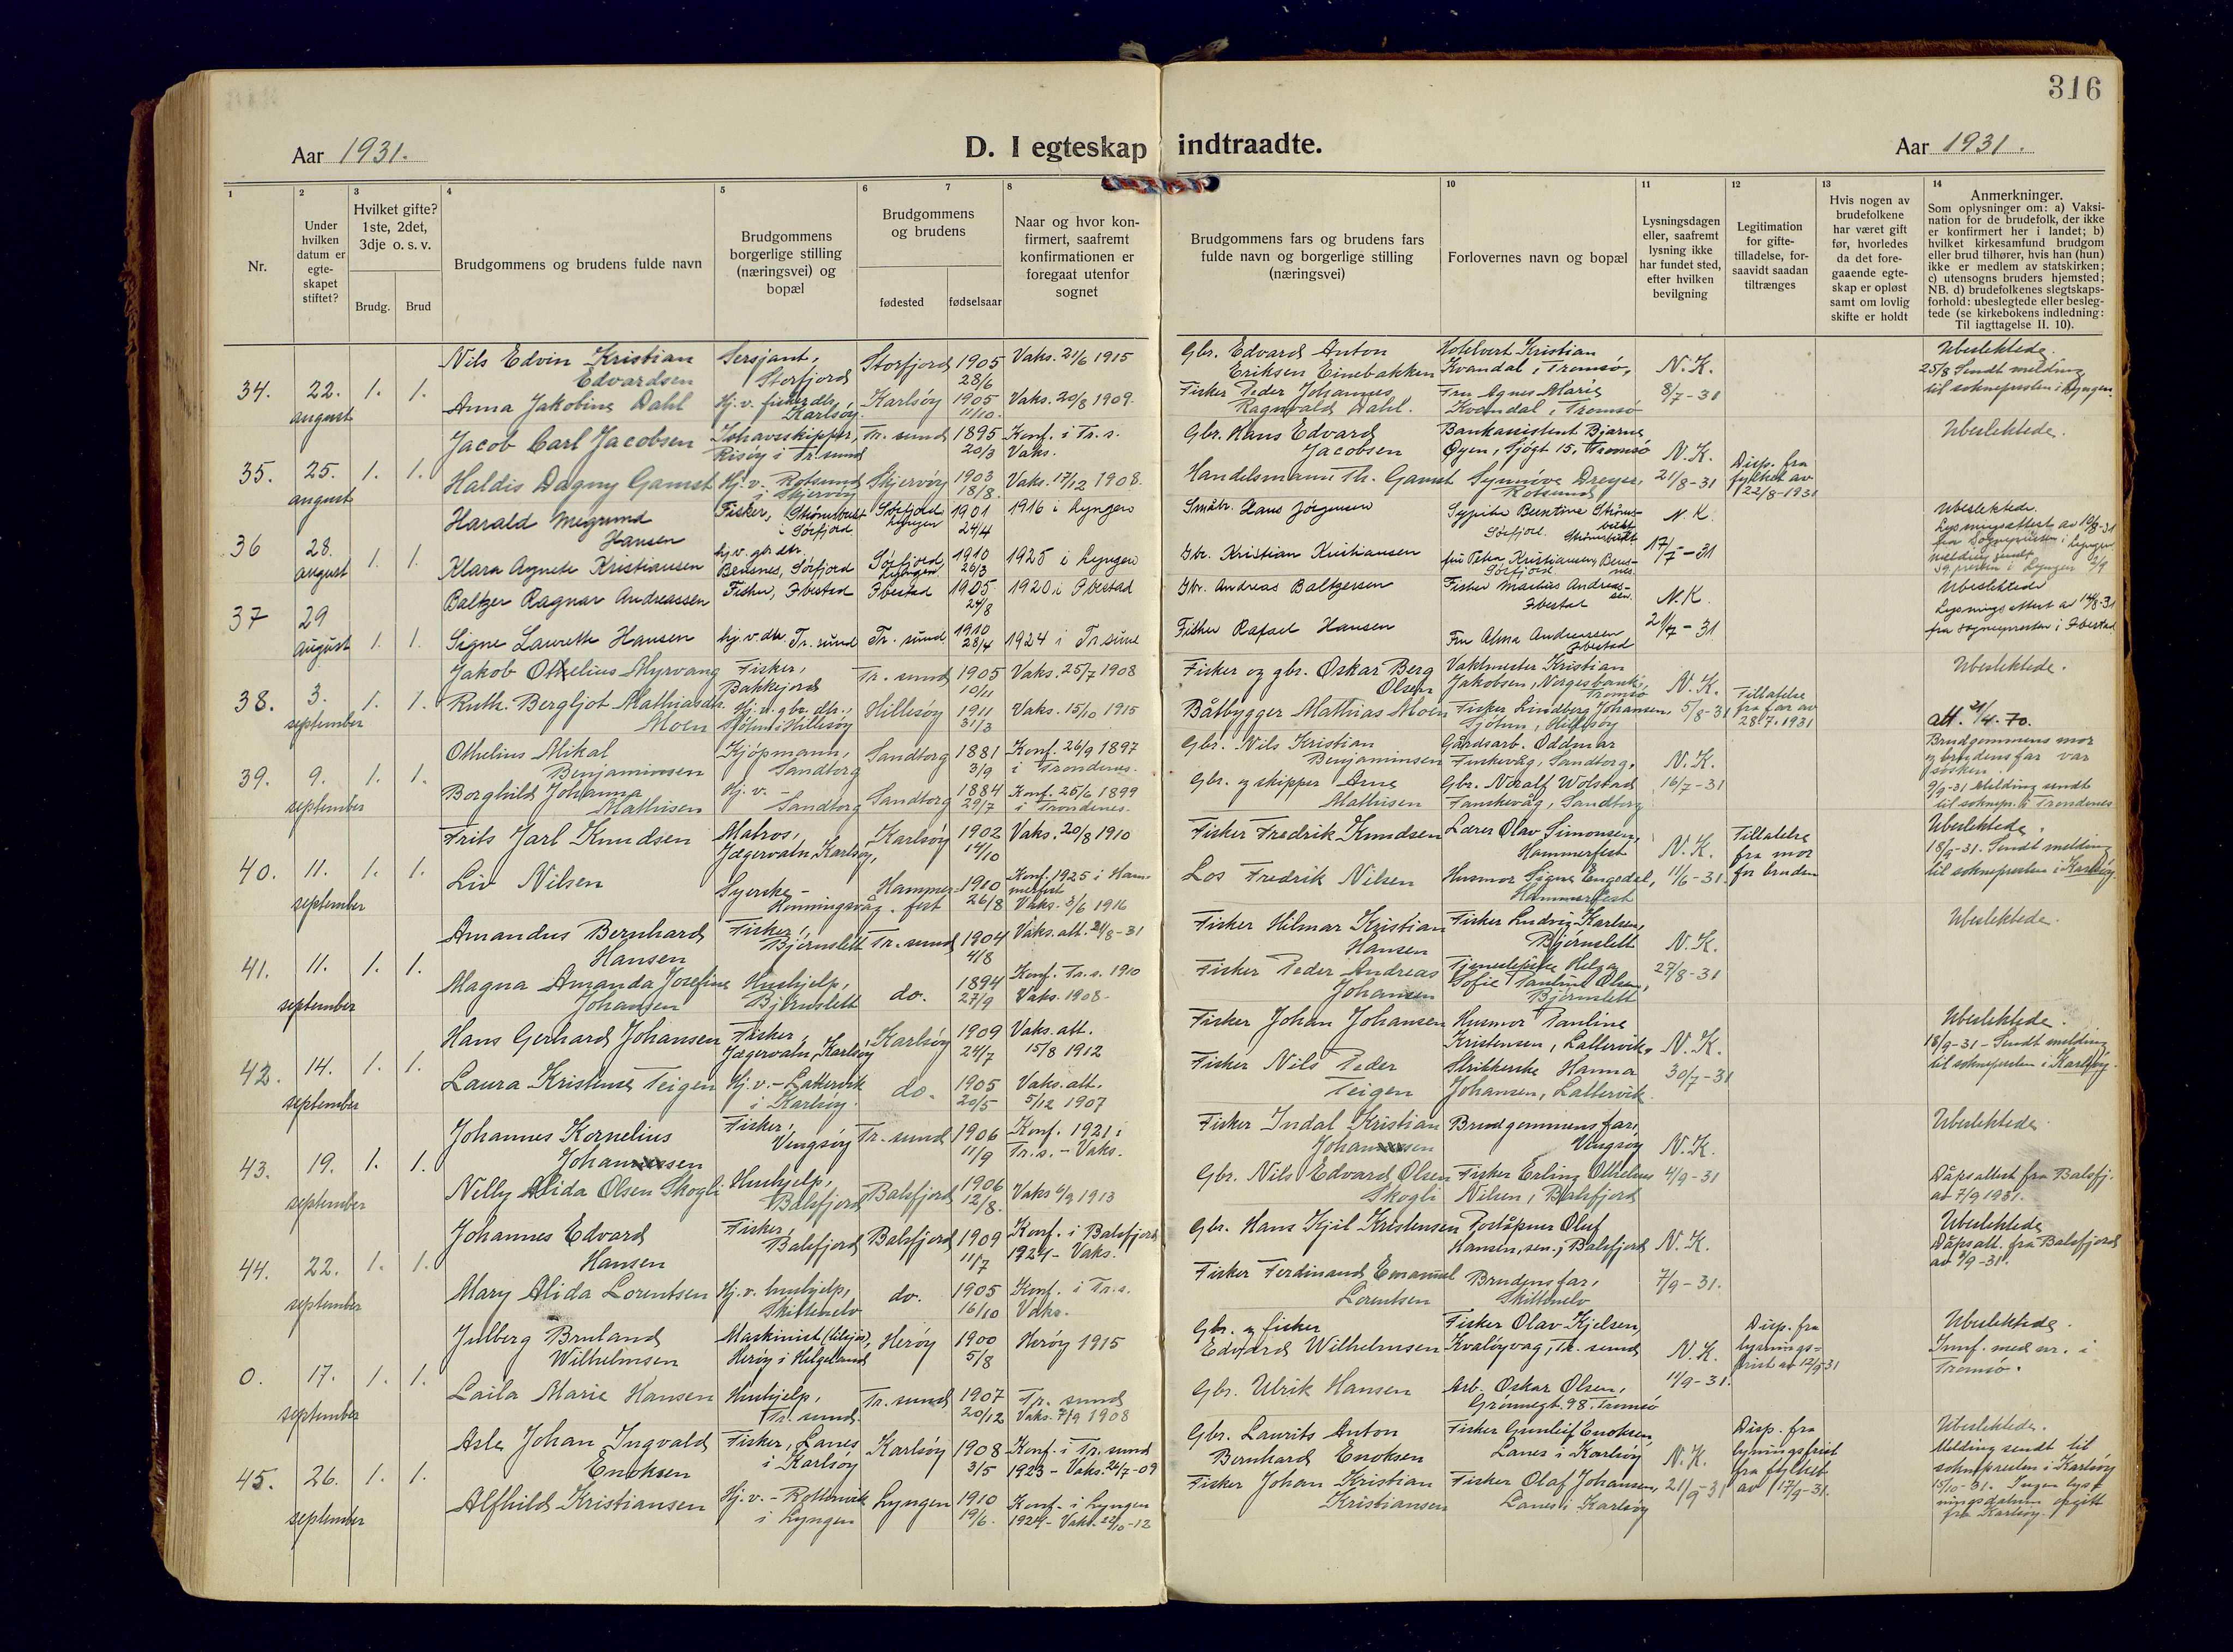 316
Aar 1931.
D. I egteskap indtraadte.
Aar 1931.
1
Nr.
2
Under
hvilken
datum er
egte-
skapet
stiftet?
3
Hvilket gifte?
1ste, 2det,
3dje o. s. v.
Brudg.
Brud
4
Brudgommens og brudens fulde navn
5
Brudgommens
borgerlige stilling
(næringsvei) og
bopæl
6
7
Brudgommens
og brudens
fødested
fødselsaar
8
Naar og hvor kon-
firmert, saafremt
konfirmationen er
foregaat utenfor
sognet
9
Brudgommens fars og brudens fars
fulde navn og borgerlige stilling
(næringsvei)
10
Forlovernes navn og bopæl
11
Lysningsdagen
eller, saafremt
lysning ikke
har fundet sted,
efter hvilken
bevilgning
12
Legitimation
for gifte-
tilladelse, for-
saavidt saadan
tiltrænges
13
Hvis nogen av
brudefolkene
har været gift
før, hvorledes
da det fore-
gaaende egte-
skap er opløst
samt om lovlig
skifte er holdt
14
Anmerkninger.
Som oplysninger om: a) Vaksi-
nation for de brudefolk, der ikke
er konfirmert her i landet; b)
hvilket kirkesamfund brudgom
eller brud tilhører, hvis han (hun)
ikke er medlem av statskirken;
c) utensogns bruders hjemsted;
NB. d) brudefolkenes slegtskaps-
forhold: ubeslegtede eller besleg-
tede (se kirkebokens indledning:
Til iagttagelse II. 10).
34. 22. august 1. 1.
Nils Edvin Kristian Edvardsen
Sersjant, Storfjord
Storfjord 1905 28/6
Vaks. 21/6 1915
Gbr. Edvard Anton Eriksen Einebakken
Hotelvert Kristian Kvandal i Tromsø,
N. K. 8/7-31
Ubeslektede.
25/8 Sendt melding
til soknepresten i Lyngen.
Anna Jakobine Dahl
Hj. v. fiskerdtr, Karlsøy.
Karlsøy 1905 11/10.
Vaks. 20/8 1909.
Fisker Peder Johannes Ragnvald Dahl.
Fru Agnes Marie Kvandal i Tromsø
35. 25. august 1. 1.
Jacob Carl Jacobsen
Ishavsskipper, Risøy i Tr.sund
Tr. sund 1895 20/3
Konf. i Tr. s. Vaks.
Gbr. Hans Edvard Jacobsen
Bankassistent Bjarne Øyen, Sjøgt 15, Tromsø
N. K. 21/8-31
Disp. fra
fylket av
22/8-1931
Ubeslektede.
Haldis Dagny Gamst
Hj. v. Rotsund i Skjervøy
Skjervøy 1903 18/8.
Vaks. 17/12 1908.
Handelsmann Th. Gamst
Synnøve Dreyer, Rotsund
36 28. august 1. 1.
Harald Hansen
Fisker, i Sørfjord
Sørfjord Lyngen 1901 24/4
1916 i Lyngen
Småbr. Hans Jørgensen
N. K. 17/7-31
Ubeslektede.
Klara Agnete Kristiansen
hj. v. gbr. dtr. Sørfjord
Sørfjord, Lyngen. 1910 26/3
1925 i Lyngen
Gbr. Kristian Kristiansen
37 29 august 1. 1.
Baltzer Ragnar Andreassen
Fisker, Ibestad
Ibestad 1905 24/8
1920 i Ibestad
Gbr. Andreas Baltzersen
Fisker Marius Andreas-sen. Ibestad
N. K. 21/7-31
Ubeslektede
Lysningsattest av 14/8-31
fra sognepresten i Ibestad
Signe Laurette Hansen
hj. v. dtr Tr. sund
Tr. sund. 1910 28/4
1924 i Tr. sund
Fisker Rafael Hansen
Fru Alma Andreassen Ibestad
38. 3. september 1. 1.
Jakob Othelius Myrvang
Fisker, Bakkejord
Tr. sund 1905 10/11
Vaks. 25/7 1908
Fisker og gbr. Oskar Berg Olsen
Vaktmester Kristian Jakobsen, Norgesbank, Tromsø
N. K. 5/8-31
Tillatelse
fra far av
28.7.1931
Ubeslektede.
att. 21/4.70.
Ruth Bergljot Mathiasdtr. Moen
Hj. v. gbr. dtr., Sjøtun i Hillesøy
Hillesøy 1911 31/3
Vaks. 15/10 1915
Båtbygger Mathias Moen
Fisker Lindberg Johansen, Sjøtun, Hillesøy
39. 9. september 1. 1.
Othelius Mikal Benjaminsen
Kjøpmann, Sandtorg
Sandtorg 1881 3/9
Konf. 26/9 1897 i Trondenes.
Gbr. Nils Kristian Benjaminsen
Gårdsarb. Oddmar Sandtorg.
N. K. 16/7-31
Brudgommens mor
og brudens far var
søsken.
9/9-31 Melding sendt
til soknepr. til Trondenes
Borghild Johanna Mathisen
Hj. v. - Sandtorg
Sandtorg 1884 29/7
Konf. 25/6 1899 i Trondenes.
Gbr. og skipper Arne Mathisen
Gbr. Noralf Wolstad Fauskevåg, Sandtorg
40. 11. september 1. 1.
Frits Jarl Knudsen
Matros, Jægervatn, Karlsøy,
Karlsøy 1902 14/10
Vaks. 20/8 1910
Fisker Fredrik Knudsen
Lærer Olav Simonsen, Hammerfest
N. K. 11/6-31.
Tillatelse
fra mor
for bruden
Ubeslektede.
18/9-31. Sendt melding
til soknepresten i Karlsøy.
Liv Nilsen
Syerske - Honningsvåg.
Hammer-fest 1910 26/8
Konf. 1925 i Ham-merfest Vaks. 3/6 1916
Los Fredrik Nilsen
Husmor Signe Engedal, Hammerfest
41. 11. september 1. 1.
Amandus Bernhard Hansen
Fisker, Bjørnslett
Tr. sund 1904 4/8
Vaks. att. 21/8-31
Fisker Hilmar Kristian Hansen
Fisker Ludvig Karlsen, Bjørnslett
N. K. 27/8-31
Ubeslektede.
Magna Amanda Josefine Johansen
Hushjelp, Bjørnslett
do. 1894 27/9
Konf. Tr. s. 1910 Vaks. 1908-
Fisker Peder Andreas Johansen
Tjenestepike Helga Sofie Pauline Olsen, Bjørnslett
42. 14. september 1. 1.
Hans Gerhard Johansen
Fisker, Jægervatn, Karlsøy
Karlsøy 1909 24/7
Vaks. att. 15/8 1912
Fisker Johan Johansen
Husmor Pauline Kristensen, Lattervik,
N. K. 30/7-31
Ubeslektede.
18/9-31 - Sendt melding
til soknepresten i Karlsøy.
Laura Kristense Teigen
Hj. v. - Lattervik i Karlsøy.
do. 1905 20/5
Vaks. att. 5/12 1907
Fisker Nils Peder Teigen
Strikkerske Hanna Johansen, Lattervik.
43. 19. september 1. 1.
Johannes Kornelius
Fisker, Vengsøy
Tr. sund 1906 11/9
Konf. 1921 i Tr. s. - Vaks.
Fisker Indal Kristian
Brudgommens far, Vengsøy
N. K. 4/9-31
Ubeslektede.
Dåpsattest fra Balsfj.
av 7/9 1931.
Nelly Alida Olsen Skogli
Hushjelp, Balsfjord
Balsfjord 1906 12/8.
Vaks 6/9 1913
Gbr. Nils Edvard Olsen Skogli
Fisker Erling Othelius Nilsen, Balsfjord
44. 22. september 1. 1.
Johannes Edvard Hansen
Fisker, Balsfjord
Balsfjord 1909 11/7
Konf. i Balsfjord 1924 - Vaks.
Gbr. Hans Kjil Kristensen
Poståpner Oluf Hansen, sen., Balsfjord
N. K. 7/9-31.
Ubeslektede
Dåpsatt. fra Balsfjord
av 3/9-31.
Mary Alida Lorentsen
Hj. v. hushjelp, Skittenelv
do. 1905 16/10
Konf. i Tr. s. Vaks.
Fisker Ferdinand Emanuel Lorentsen
Brudens far, Skittenelv
0. 17. september 1. 1.
Julberg Bruland Wilhelmsen
Maskinist (tilsjøs), Herøy i Helgeland
Herøy 1900 5/8
Herøy 1915
Gbr. og fisker Edvard Wilhelmsen
Fisker Olav Kjelsen, Kvaløyvag, Tr. sund
N. K. 11/9-31.
Disp. fra
lysnings-
frist av 12/9-31
Ubeslektede.
Innf. med nr. i
Tromsø.
Laila Marie Hansen
Hushjelp, Tr. sund.
Tr. sund 1907 20/12
Tr. sund Vaks. 7/9 1908
Gbr. Ulrik Hansen
Arb. Oskar Olsen, Grønnegt. 98. Tromsø
45. 26. september 1. 1.
Asle Johan Ingvald Enoksen
Fisker, Lanes i Karlsøy
Karlsøy 1908 3/5
Konf. i Tr. sund 1923 - Vaks. 24/7-09
Gbr. Laurits Anton Bernhard Enoksen
Fisker Gunleif Enoksen, Lanes i Karlsøy
N. K. 21/9-31
Disp. fra
lysningsfrist
fra fylket
av 17/9-31.
Ubeslektede.
Melding sendt til
soknepresten i Karlsøy
15/10-31. Ingen lys-
ningsdatum opgitt
fra Karlsøy.
Alfhild Kristiansen
Hj. v. - Rottenvik i Lyngen
Lyngen 1910 19/6.
Konf. i Lyngen 1924 - Vaks. 22/10-12
Fisker Johan Kristian Kristiansen
Fisker Olaf Johansen, Lanes i Karlsøy